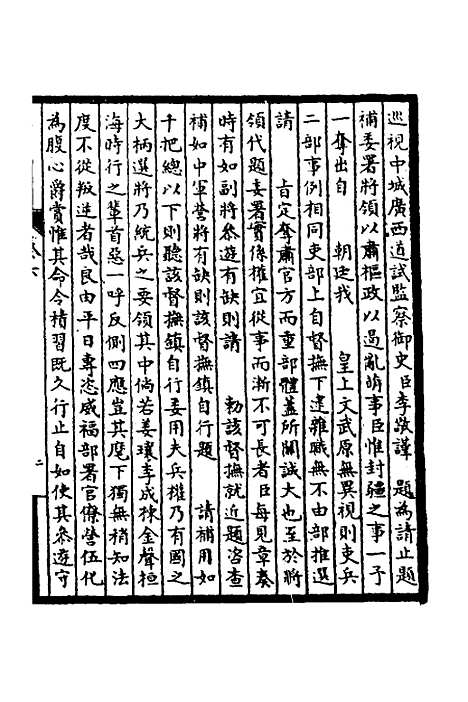 巡視中城廣西道試監察御史臣李敬謹　題為請止題
補委署將領以肅樞政以遏亂萌事臣惟封疆之事一予
一奪出自　朝廷我　皇上文武原無異視則吏兵
二部事例相同吏部上自督撫下逮雜職無不由部推選
請　旨定奪肅官方而重部體蓋所關誠大也至於將
領代題委署實係權宜從事而漸不可長者臣每見章奏
時有如副將參遊有缺則請　勅該督撫就近題咨查
補如中軍營將有缺則該督撫鎮自行題　請補用如
千把總以下則聽該督撫鎮自行委用夫兵權乃有國之
大柄選將乃統兵之要領其中倘若姜瓖李成棟金聲桓
海時行之輩首惡一呼反側四應豈其麾下獨無稍知法
度不從叛逆者哉良由平日專恣威福部署官僚營伍代
為腹心爵賞惟其命令積習既久行止自如使其參遊守
二